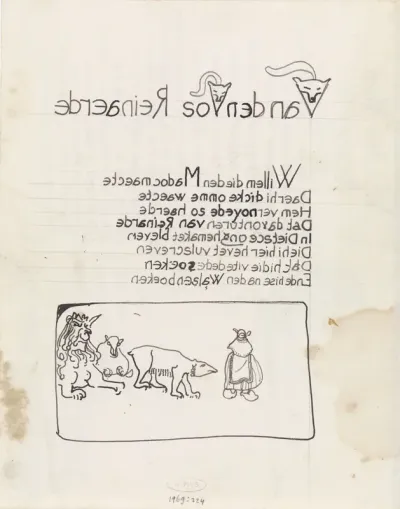 Van den Vos Reinaerde
Willem die den Madoc maecte
Daer hi dicke omme waecte
Hem vernoyede so haerde
Dat davontoren van Reinarde
In Dietsce onghemaket bleven
Die hi hier hevet vulscreven
Dat hi die vite dede soeken
Ende hise na den Walscen boeken
1969:224